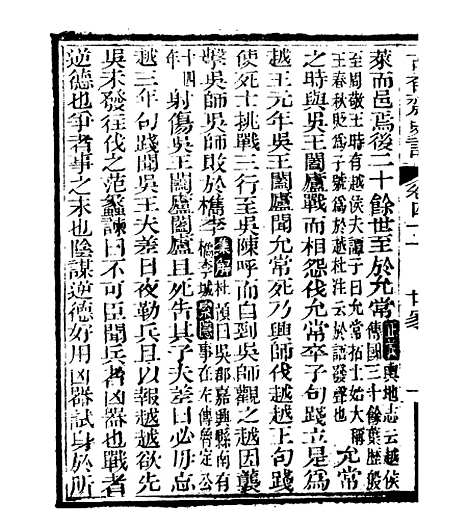 古香齋史記 卷四十一 世家 一
萊而邑焉後二十餘世至於允常正義輿地志云越侯傳國三十餘葉歷殷
至周敬王時有越侯夫譚子曰允常拓土始大稱王春秋貶為子號為於越杜注云於語發聲也允常
之時與吳王闔廬戰而相怨伐允常卒子句踐立是為
越王元年吳王闔廬聞允常死乃興師伐越越王句踐
使死士挑戰三行至吳陳呼而自剄吳師觀之越因襲
擊吳師吳師敗於檇李集解杜預曰吳郡嘉興縣南有檇李城索隱事在左傳魯定公
十四年射傷吳王闔廬闔廬且死告其子夫差曰必毋忘
越三年句踐聞吳王夫差日夜勒兵且以報越越欲先
吳未發往伐之范蠡諫曰不可臣聞兵者凶器也戰者
逆德也爭者事之末也陰謀逆德好用凶器試身於所